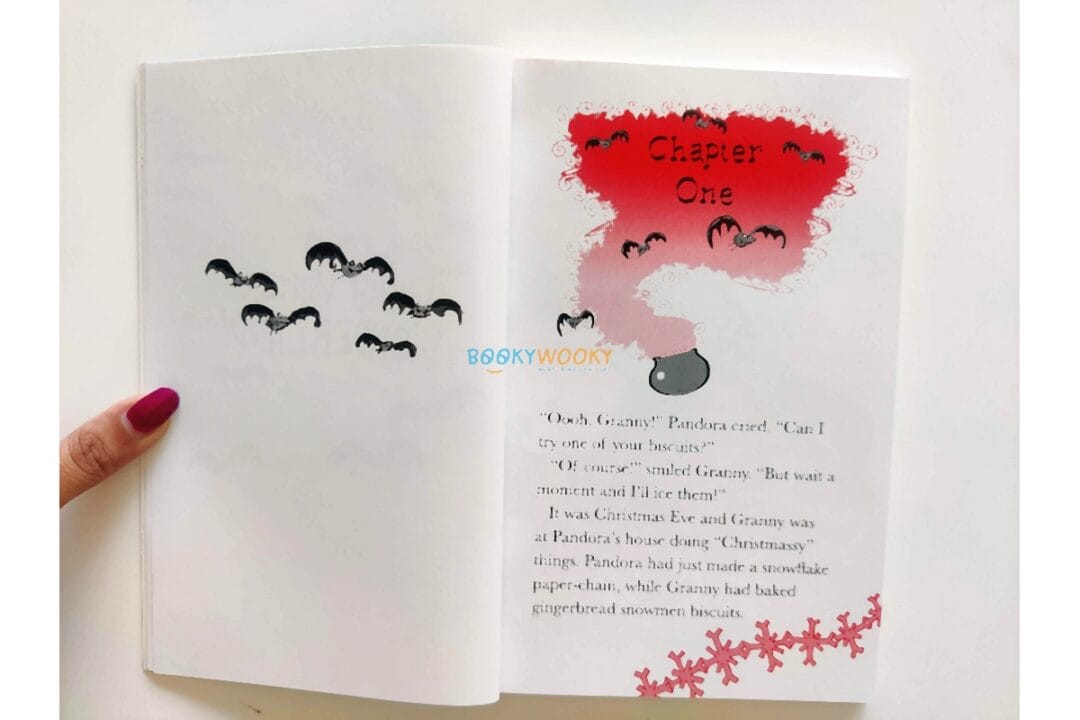 Chapter
One
BOOKYWOOKY
"Oooh, Granny!" Pandora cried. "Can I
try one of your biscuits?"
"Of course!" smiled Granny. "But wait a
moment and I'll ice them!"
It was Christmas Eve and Granny was
at Pandora's house doing "Christmassy"
things. Pandora had just made a snowflake
paper-chain, while Granny had baked
gingerbread snowmen biscuits.